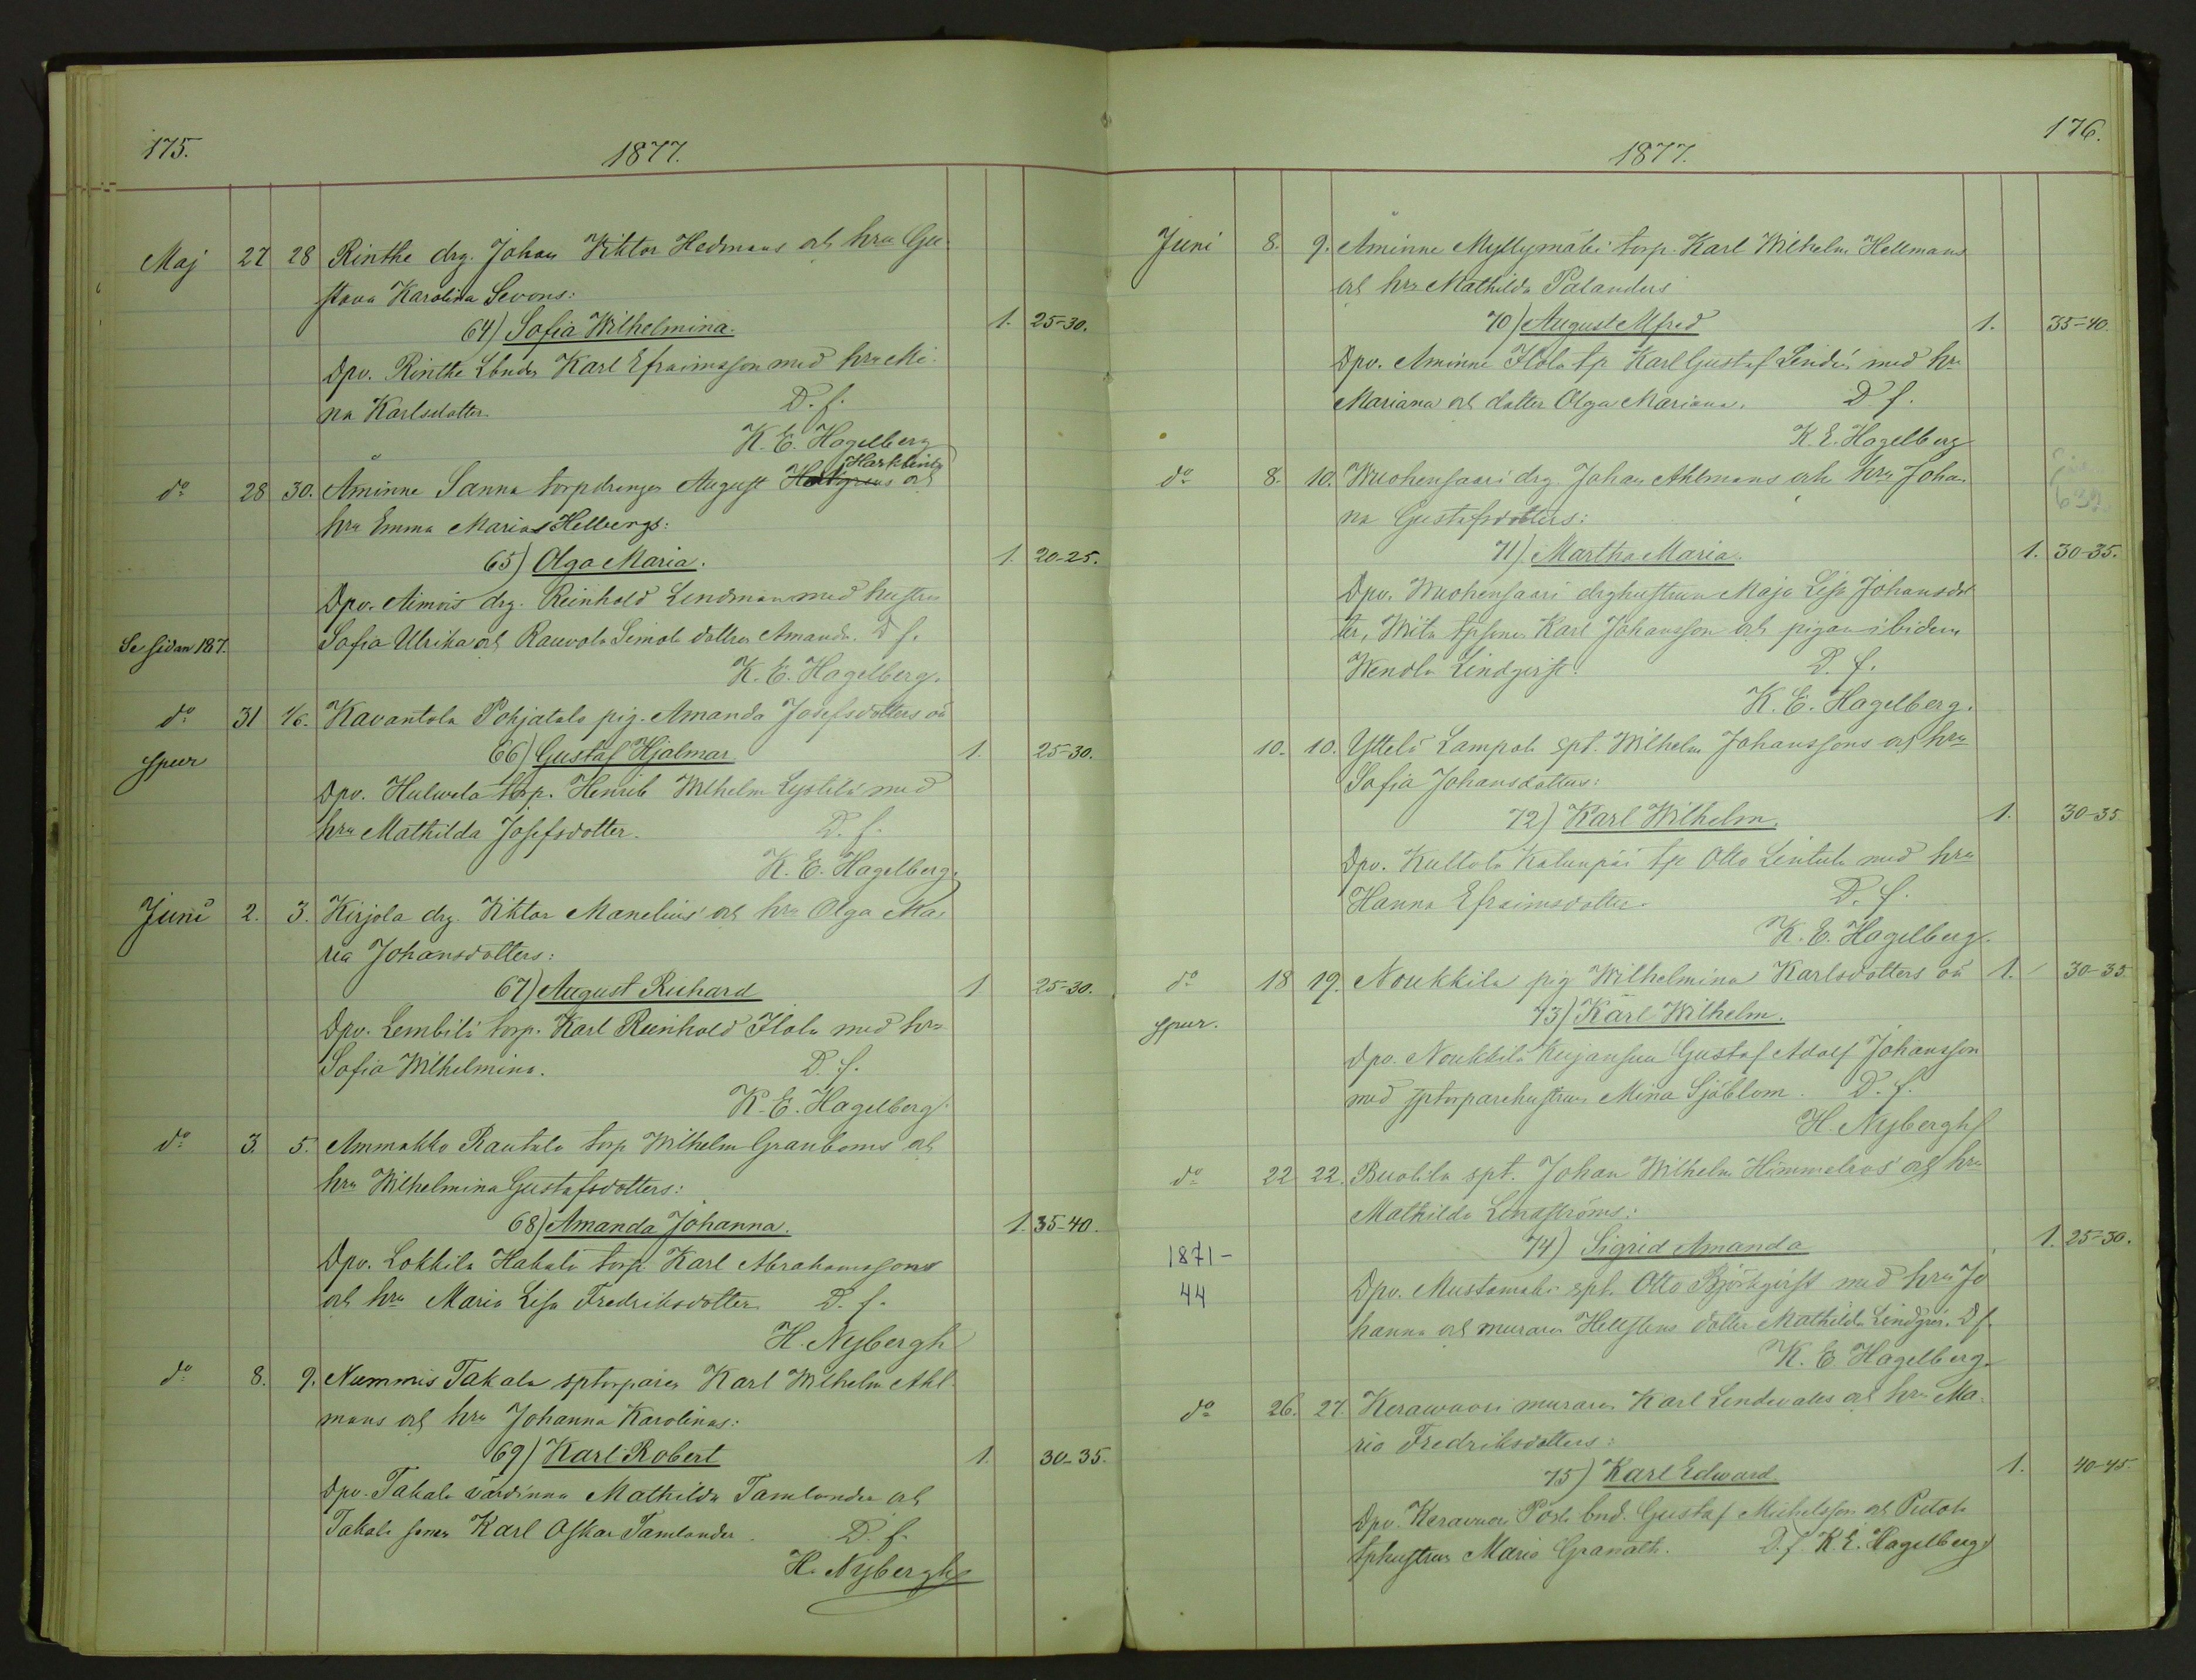 175.
1877.
Maj 27 28 Rinthe drg. Johan Viktor Hedmans och hru Gu-
stava Karolina Sevons:
64) Sofia Wilhelmina. 1. 25-30.
Dpv. Rinthe Lbnder Karl Efraimsson med hru Mi-
na Karlsdotter. D. f.
K. E. Hagelberg
Harklints
do 28 30. Åminne Sanna torpdrengen August och
hru Emma Marias Hellbergs:
65) Olga Maria. 1. 20-25.
Dpv. Aimois drg. Reinhold Lindman med hustru
Se sidan 187. Sofia Ulrika och Rauvola Simola dottren Amanda. D f.
K. E. Hagelberg.
do 31 1/6. Kavantola Pohjatalo pig. Amanda Josefsdotters oä
spur 66) Gustaf Hjalmar. 1. 25-30.
Dpv. Hulvela torp. Henrik Wilhelm med
hru Mathilda Josefsdotter. D. f.
K. E. Hagelberg.
Juni 2. 3. Kirjola drg. Viktor Manelius' och hru Olga Ma-
ria Johansdotters:
67) August Richard 1 25-30.
Dpv. Lembilä torp. Karl Reinhold Ilola med hru
Sofia Wilhelmina. D. f.
K. E. Hagelberg.
do 3. 5. Ammakko Rautalo torp Wilhelm Granboms och
hru Wilhelmina Gustafsdotters:
68) Amanda Johanna. 1. 35-40.
Dpv. Lokkila Hakala torp. Karl Abrahamssons
och hru Maria Lisa Fredriksdotter. D. f.
H. Nybergh
do 8. 9. Nummis Takala sptorparen Karl Wilhelm Ahl-
mans och hru Johanna Karolinas:
69) Karl Robert 1. 30-35.
Dpv. Takala värdinna Mathilda Tamlander och
Takala sonen Karl Oskar Tamlander. D. f.
H. Nybergh
176.
1877.
Juni 8. 9. Åminne Myllymäki torp. Karl Wilhelm Hellmans
och hru Mathilda Palanders
70) August Alfred 1. 35-40.
Dpv. Aminne Ilola tp Karl Gustaf Lindén med hru
Mariana och dotter Olga Mariana. D f.
K. E. Hagelberg
do 8. 10. Wuohensaari drg. Johan Ahlmans och hru Johan-
na Gustafsdotters:
71) Martha Maria. 1. 30-35.
Dpv. Wuohensaari drghustrun Maja Lisa Johansdot
ter, Wita tpsonen Karl Johansson och pigan ibidem
Wendla Lindqvist. D. f.
K. E. Hagelberg.
10. 10. Yttelä Lampola spt. Wilhelm Johanssons och hru
Sofia Johansdotters:
72) Karl Wilhelm. 1. 30-35
Dpv. Kultola tp Otto Lintula med hru
Hanna Efraimsdotter. D. f.
K. E. Hagelberg.
do 18 19. Noukkila pig Wilhelmina Karlsdotters oä 1. 30-35.
spur. 73) Karl Wilhelm.
Dpv. Noukkila Kujansuu Gustaf Adolf Johansson
med sptorparehustrun Mina Sjöblom. D. f.
H. Nybergh
do 22 22. Ruolila spt. Johan Wilhelm Himmelroos' och hru
Mathilda Lindströms:
1871- 74) Sigrid Amanda 1. 25-30.
44 Dpv. Mustamäki spt. Otto Björkqvist med hru Jo
hanna och muraren Hellstens dotter Mathilda Lindgrén. D f.
K. E. Hagelberg.
do 26. 27. Kerawuori muraren Karl Lindevalls och hru Ma-
ria Fredriksdotters:
75) Karl Edward. 1. 40-45.
Dpv. Keravuori bnd. Gustaf Michelsson och
tphustrun Maria Granath. D. f. K. E. Hagelberg